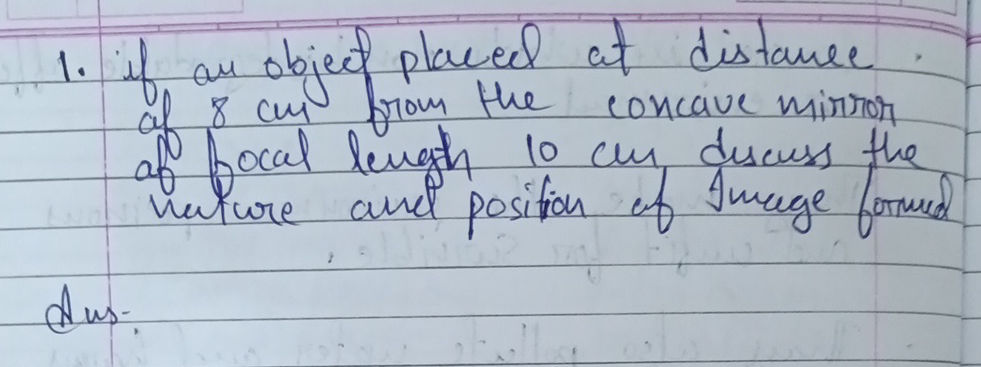 1. if an object placed at distance
of 8 cm from the concave mirror
of focal length 10 cm discuss the
nature and position of Image formed
Ans-